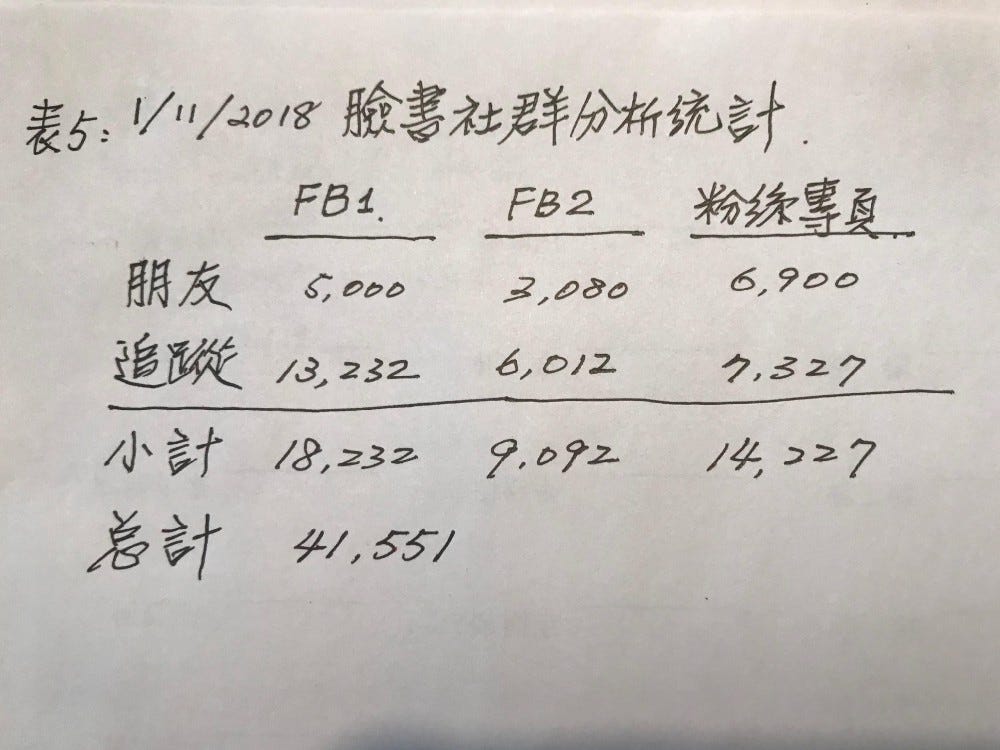 表5: 1/11/2018 臉書社群分析統計.
FB1. FB2 粉絲專頁
朋友 5,000 3,080 6,900
追蹤 13,232 6,012 7,327
小計 18,232 9,092 14,227
总計 41,551